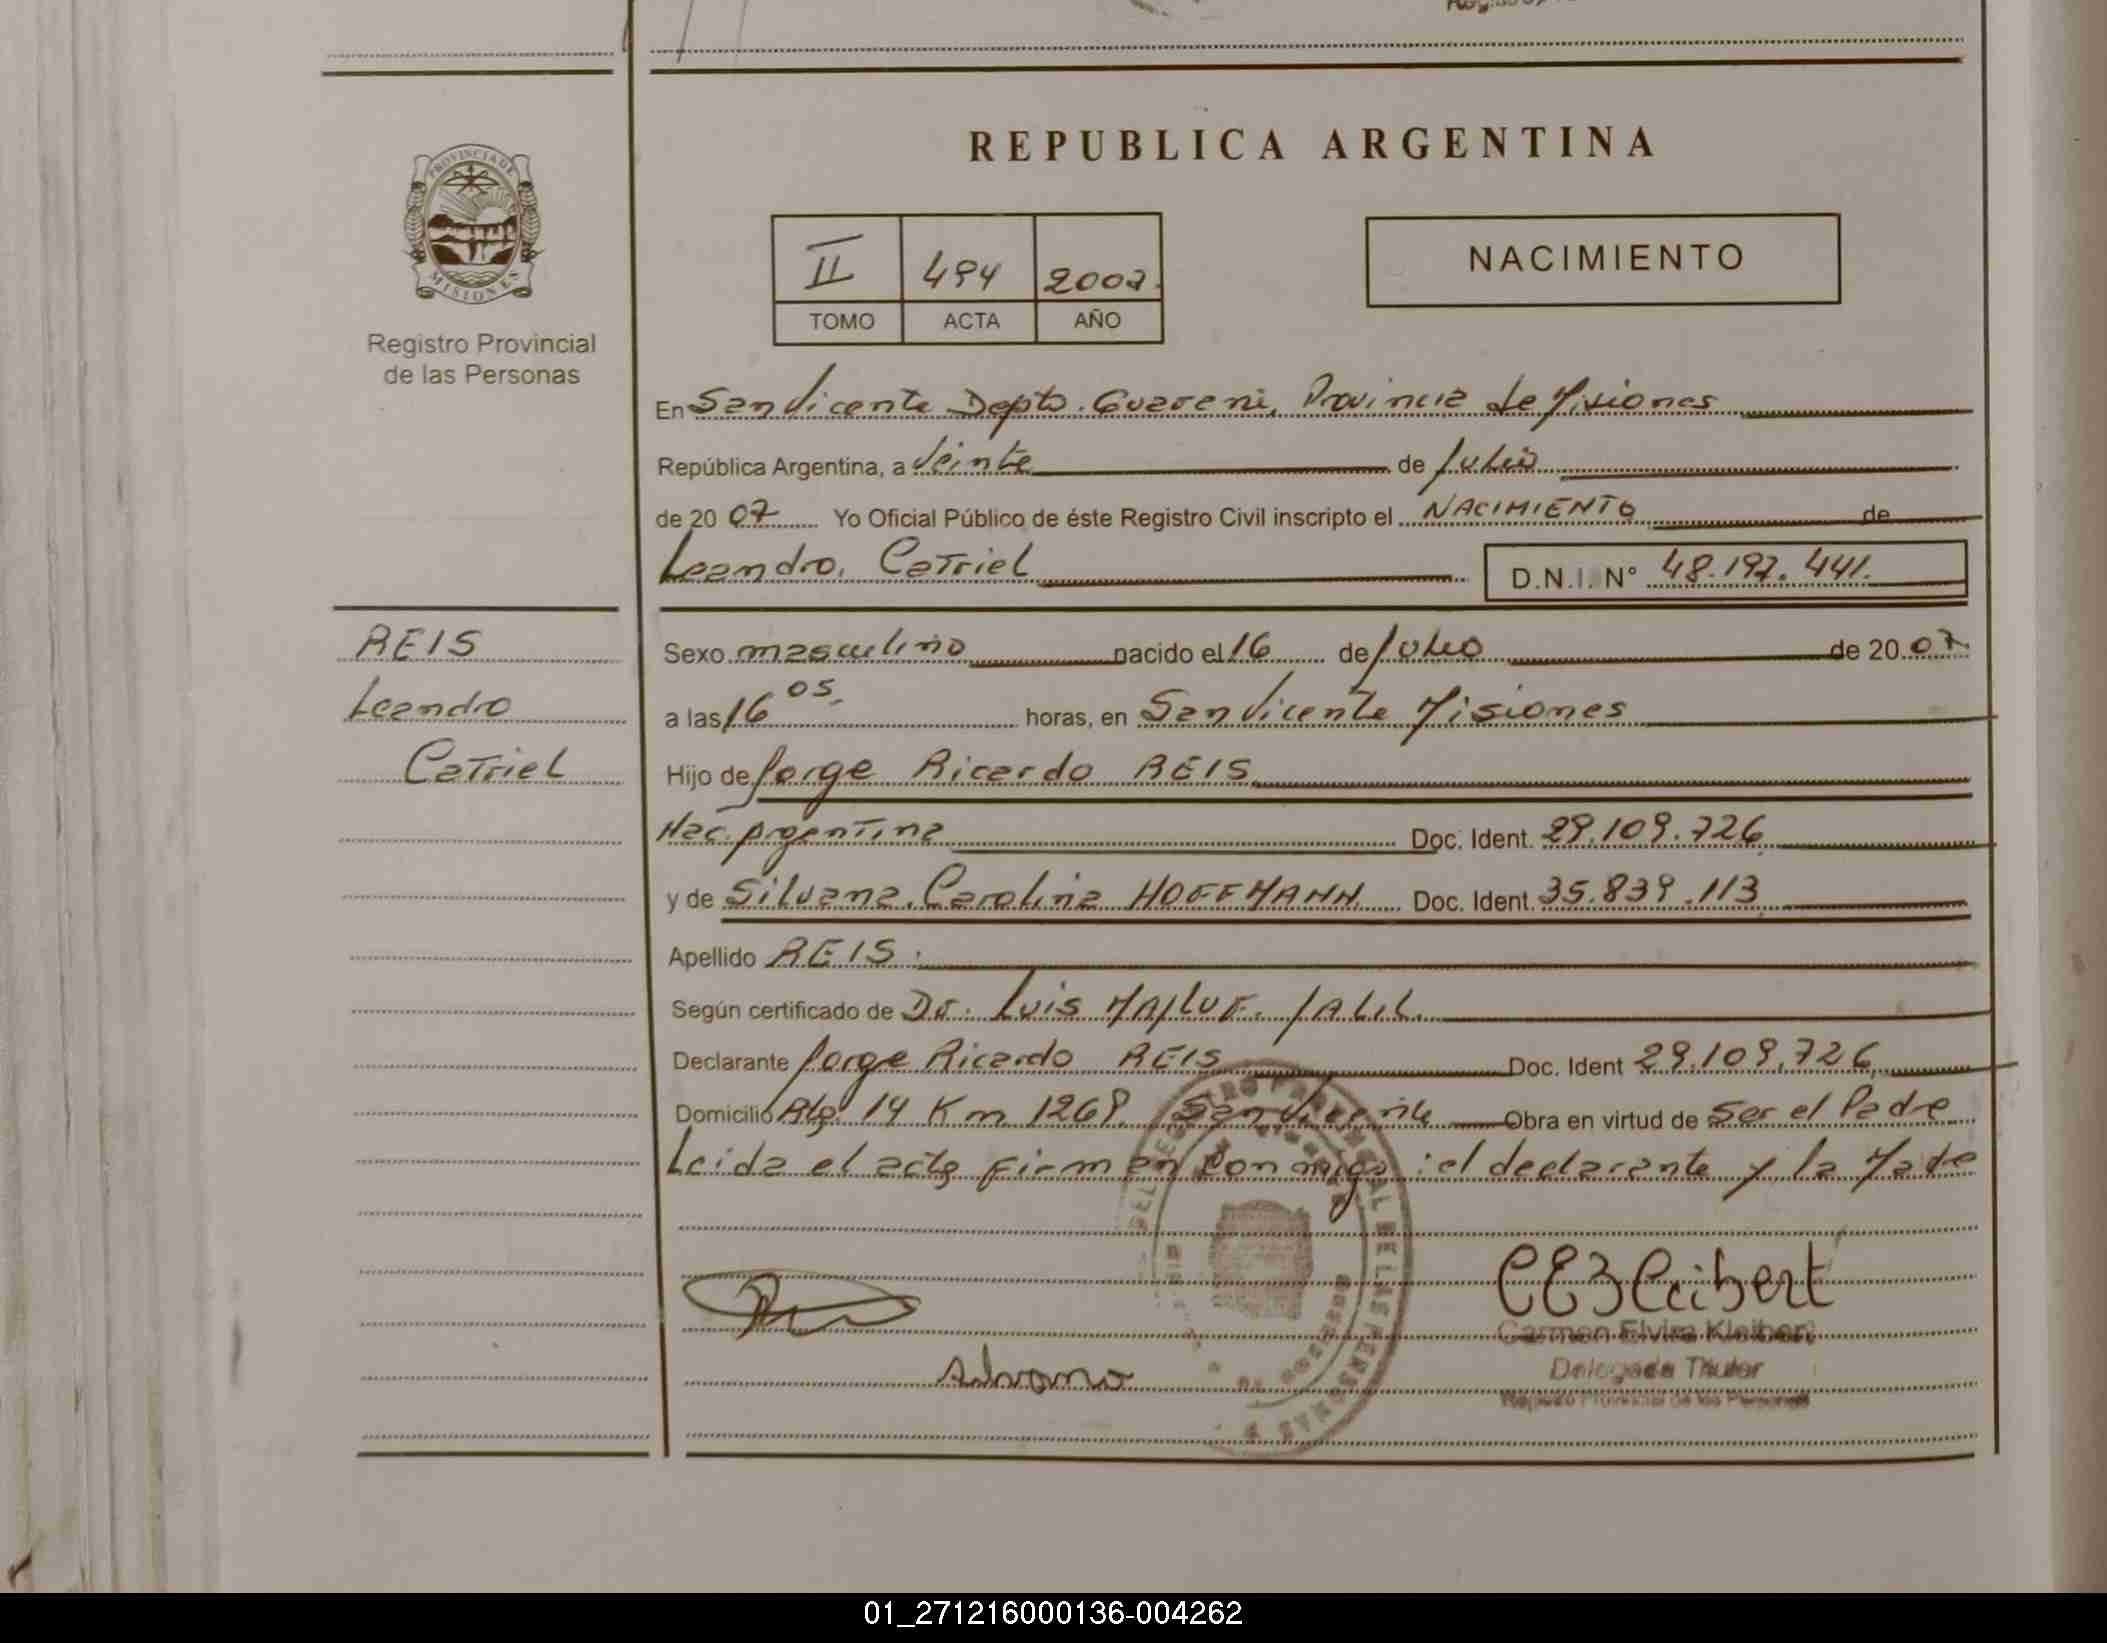 REPUBLICA ARGENTINA
PROVINCIA DE
MISIONES
Registro Provincial
de las Personas
II 494 2007
TOMO ACTA AÑO
NACIMIENTO
En San Vicente Depto. Guarani, Provincia de Misiones
República Argentina, a Veinte de Julio
de 2007 Yo Oficial Público de éste Registro Civil inscripto el NACIMIENTO de
Leandro, Catriel D.N.I. N° 48.197.441.
REIS
Leandro
Catriel
Sexo masculino nacido el 16 de Julio de 2007.
a las 16 05, horas, en San Vicente Misiones
Hijo de Jorge Ricardo REIS
Nac. Argentina Doc. Ident. 29.109.726
y de Silvana, Carolina HOFFMANN Doc. Ident. 35.839.113
Apellido REIS.
Según certificado de Dr. Luis MAJLUF. JALIL.
Declarante Jorge Ricardo REIS Doc. Ident 29.109.726
Domicilio Rta. 14 Km 1269 San Vicente Obra en virtud de Ser el Padre
Leida el acta firman conmigo: el declarante y la Madre
Silvana
Carmen Elvira Kleibert
Delegada Titular
Registro Provincial de las Personas
01_271216000136-004262